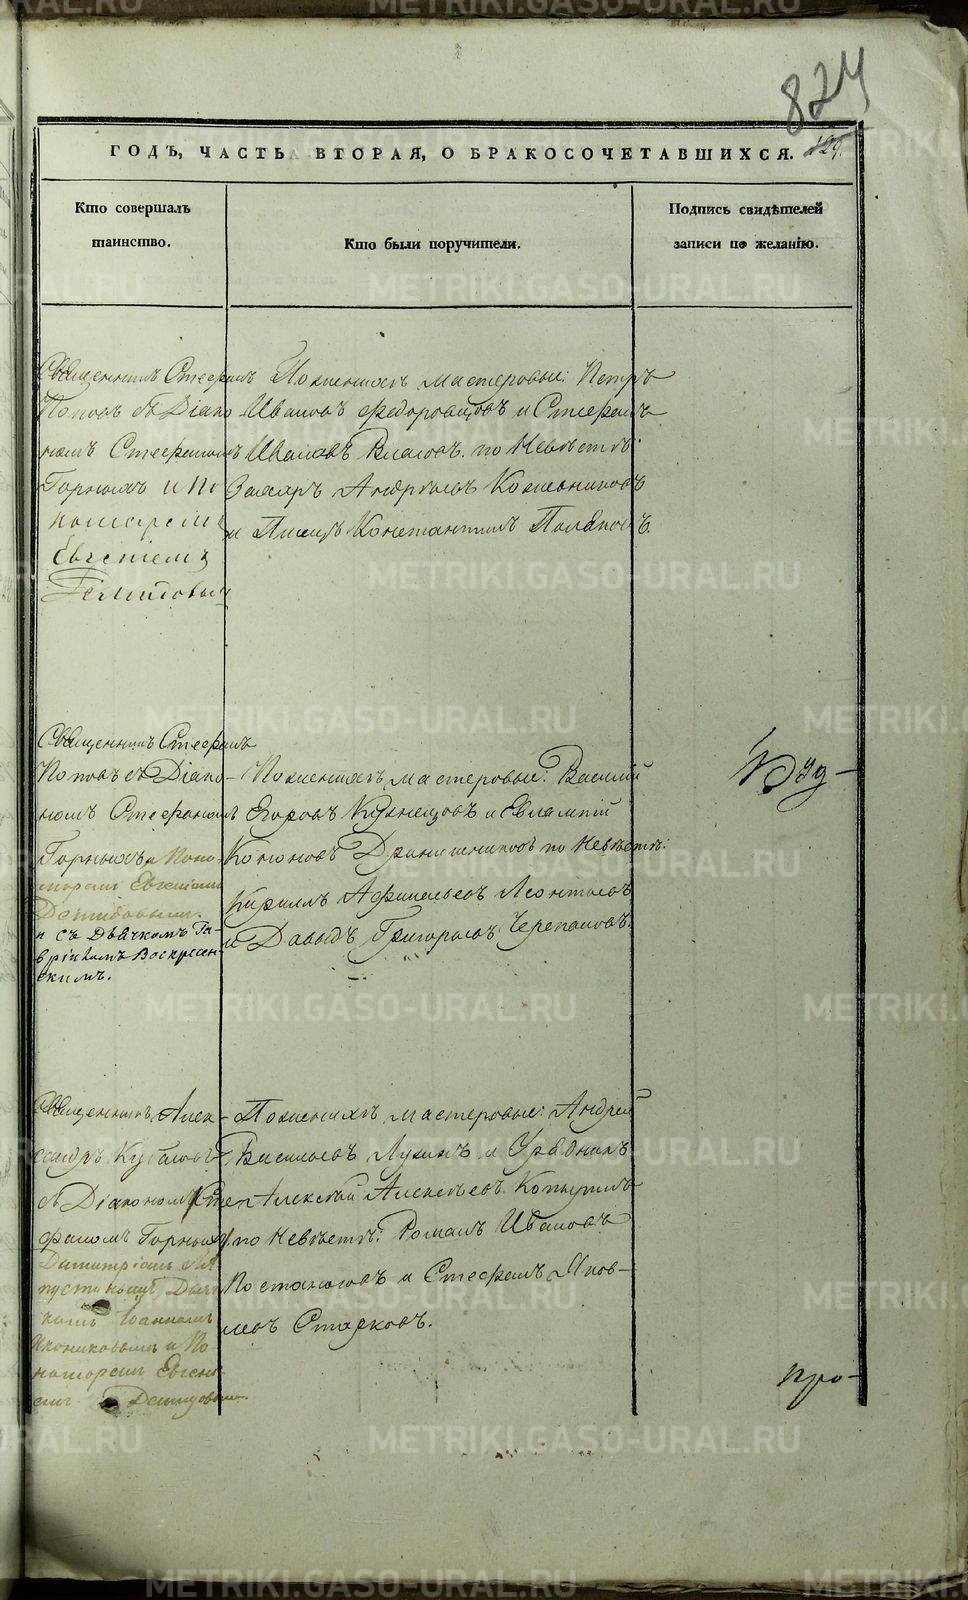 824
129.
ГОДЪ, ЧАСТЬ ВТОРАЯ, О БРАКОСОЧЕТАВШИХСЯ.
Кто совершалъ
таинство.
Кто были поручители.
Подпись свидѣтелей
записи по желанію.
Священникъ Стефанъ
Поповъ съ Діако
номъ Стефаномъ
Горныхъ и По
номаремъ
Евгеніемъ
Демидовымъ
По женихѣ мастеровые: Петръ
Ивановъ Федоровцовъ и Стефанъ
Ивановъ Власовъ. по Невѣстѣ:
Захаръ Андреевъ Кожевниковъ
и Писецъ Константинъ Поляковъ.
Священникъ Стефанъ
Поповъ съ Діако-
номъ Стефаномъ
Горныхъ и Поно-
маремъ Евгеніемъ
Демидовымъ.
и съ Дьячкомъ Га-
вріиломъ Воскресен-
скимъ.
По женихѣ мастеровые: Василій
Егоровъ Кузнецовъ и Евлампій
Кононовъ Дранишниковъ по Невѣстѣ:
Кириллъ Афанасьевъ Леонтьевъ
и Давыдъ Григорьевъ Черепановъ.
Священникъ Алек-
сандръ
съ Діакономъ Сте
фаномъ Горныхъ
Димитріемъ Ля
пустинымъ Дьяч
комъ Іоанномъ
Иконниковымъ и По-
номаремъ Евгені-
емъ Демидовымъ
По женихѣ мастеровые: Андрей
Васильевъ Лукинъ и Урядникъ
Алексѣй Алексѣевъ Копыринъ
по Невѣстѣ: Романъ Ивановъ
Постаноговъ и Стефанъ Яков-
левъ Старковъ.
про-
METRIKI.GASO-URAL.RU